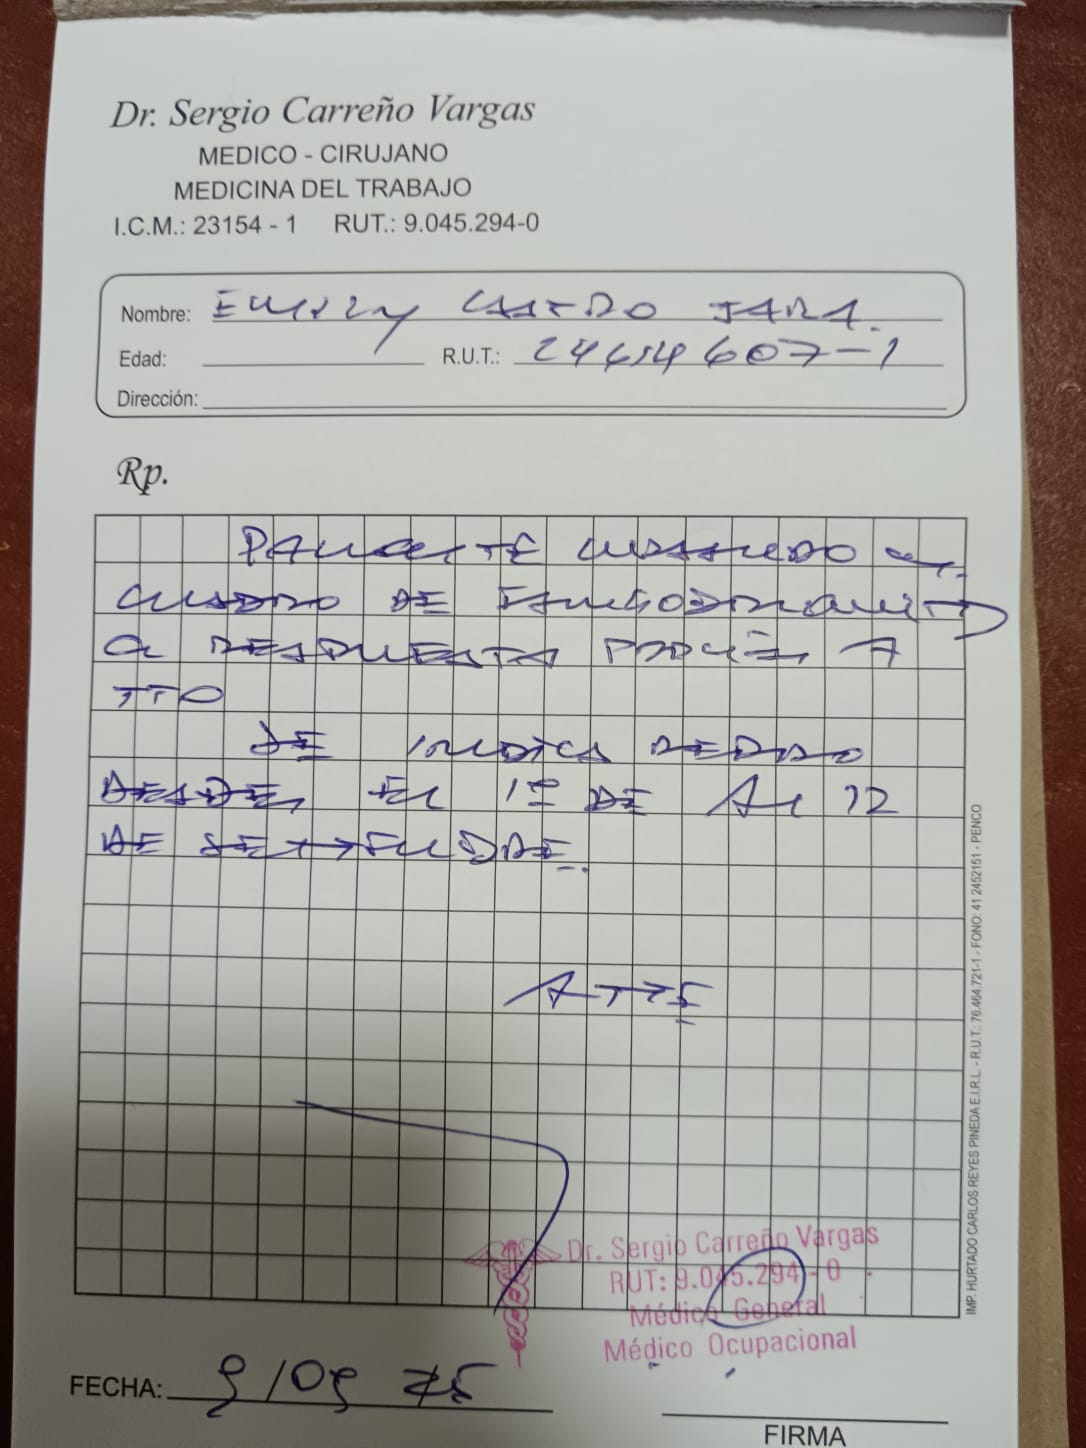 Dr. Sergio Carreño Vargas
MEDICO - CIRUJANO
MEDICINA DEL TRABAJO
I.C.M.: 23154 - 1 RUT.: 9.045.294-0
Nombre: EMILY CASTRO JARA.
Edad: R.U.T.: 607-1
Dirección:
Rp.
PACIENTE CURSANDO
CUADRO DE
RESPUESTA A
TTO
SE INDICA REPOSO
DESDE EL 1º DE AL 12
DE SEPTIEMBRE.
ATTE
Dr. Sergio Carreño Vargas
RUT: 9.045.294 - 0
Médico General
Médico Ocupacional
FECHA: 9/09 25
FIRMA
IMP. HURTADO CARLOS REYES PINEDA E.I.R.L. - R.U.T.: 76.464.721-1 - FONO: 41 2452151 - PENCO